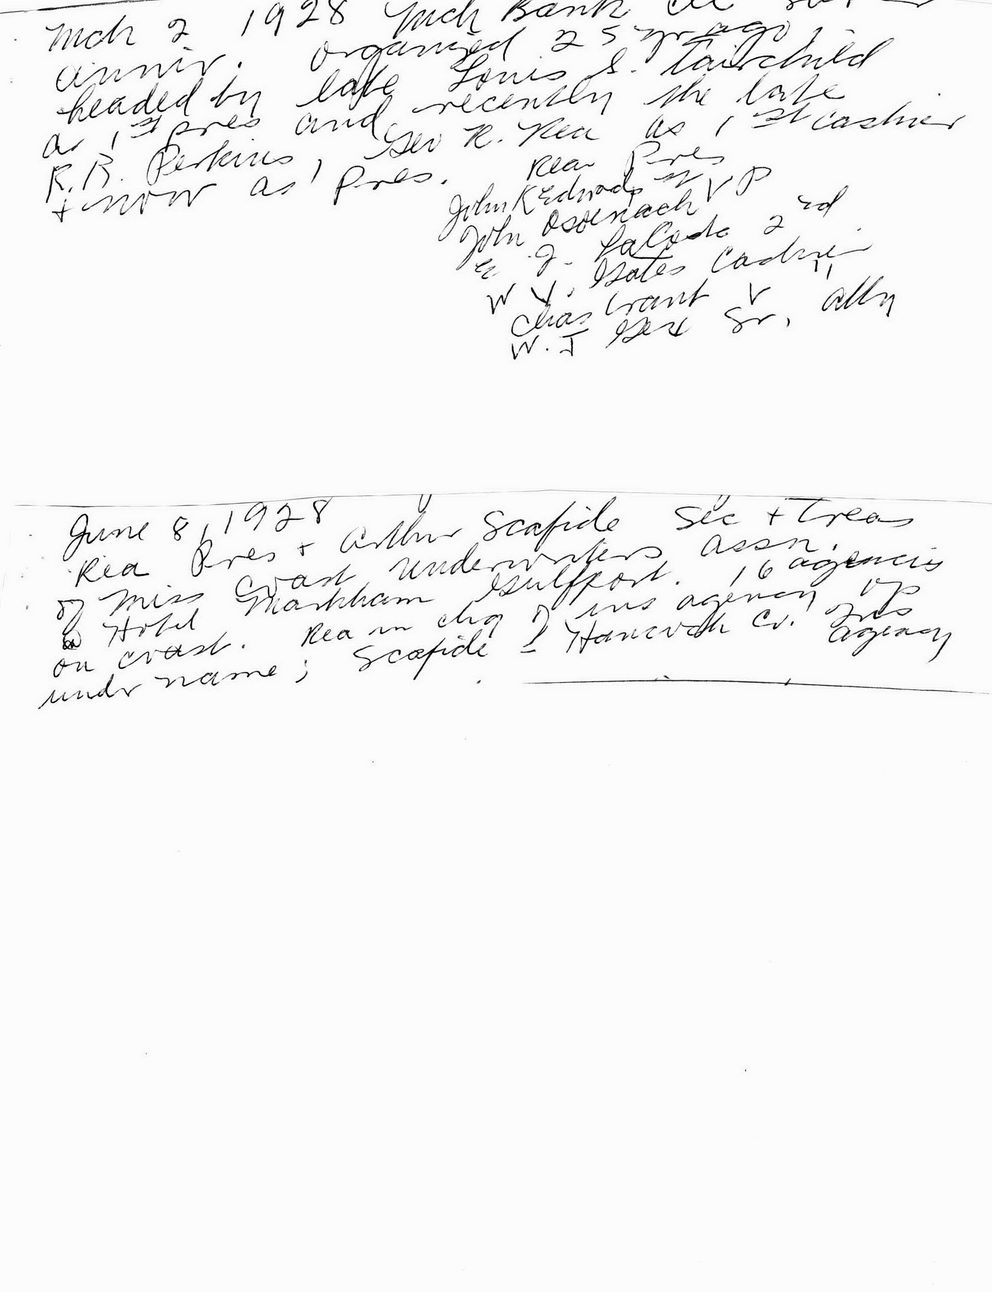 Mch 2 1928 Mch Bank
anniv. organized 25 yr ago,
headed by late Louis S. Fairchild
as 1st pres and recently the late
R.R. Perkins, Geo R. Rea as 1st cashier
+ now as Pres. Rea Pres
John K Edwards 1st VP
John Osoinach
E. J. LaCoste 2nd
W. V. Yates Cashier
Chas Grant V "
W. J Gex Sr. atty
June 8, 1928
Rea Pres + Arthur Scafide Sec + treas
of Miss Coast Underwriters Assn.
Hotel Markham Gulfport. 16 agencies
on coast. Rea in chg of ins agency op
undr name; Scafide = Hancock Co. Ins
agency